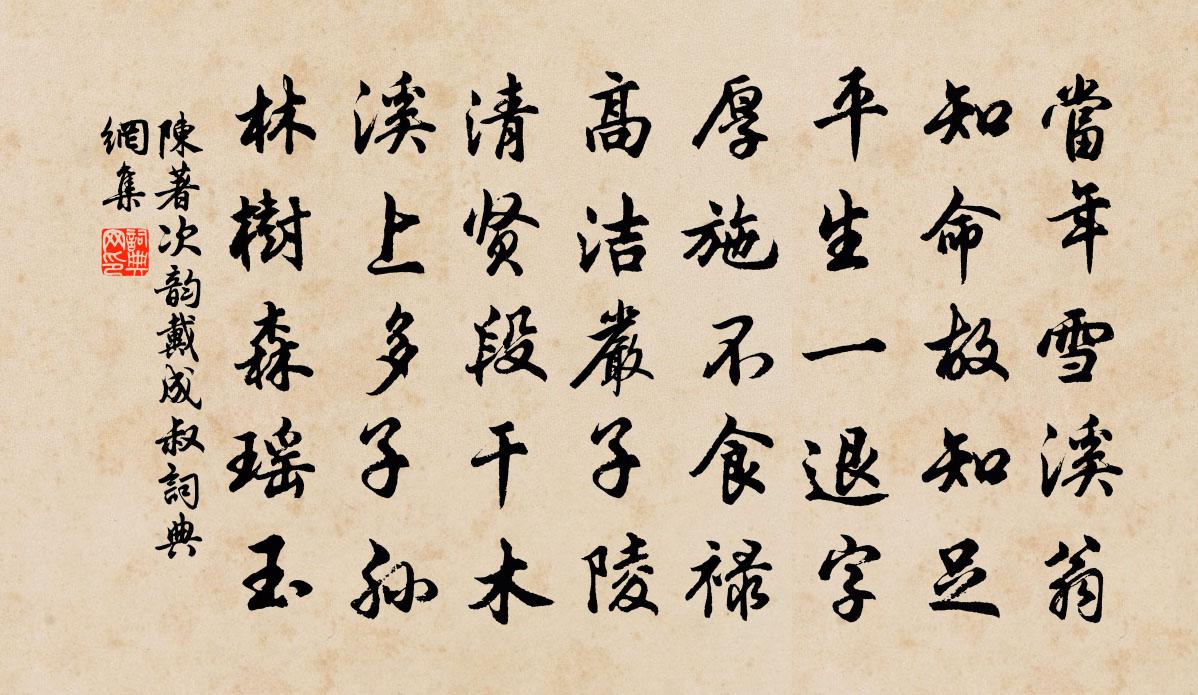 當年雪溪翁
知命故知足
平生一退字
厚施不食禄
高洁嚴子陵
清贤段干木
溪上多子孙
林樹森瑶玉
陳著次韵戴成叔詞典
網集
詞典
网印